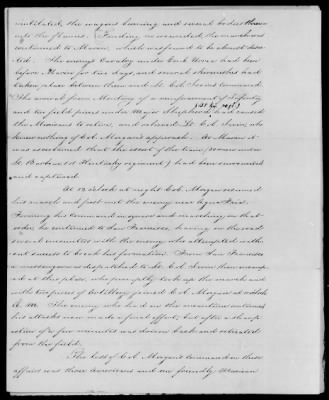 mutilated, the wagons burning and several bodies thrown
into the flames. Finding no wounded, the march was
continued to Marin, which was found to be almost deser
ted. The enemy's Cavalry under Genl Urrea had been
before Marin for two days, and several skirmishes had
taken place between them and Lt. Col. Irvin's command.
The arrival from Monterey of a reinforcement of Infantry
and two field pieces under Major Shepherd, had caused
(1st Ky. regt.)
the Mexicans to retire, and relieved Lt. Col. Irvin, who
knew nothing of Col. Morgan's approach. At Marin it
was ascertained that the escort of the train (40 men under
Lt. Barbour 1st Kentucky regiment) had been surrounded
and captured.
At 12 o'clock at night Col. Morgan resumed
his march and first met the enemy near Agua Fria.
Forming his command in square and marching in that
order he continued to San Francisco, having on the road
several encounters with the enemy who attempted with-
out success to break his formation. From San Francisco
a messenger was dispatched to Lt. Col. Irvin then encamp-
ed at that place, who promptly took up the march and
with two pieces of Artillery joined Col. Morgan at
A. M. The enemy who had in the meantime continued
his attacks now made a final effort, but after a sharp
action of a few minutes was driven back and retreated
from the field.
The loss of Col. Morgan's command in these
affairs was three Americans and one friendly Mexican